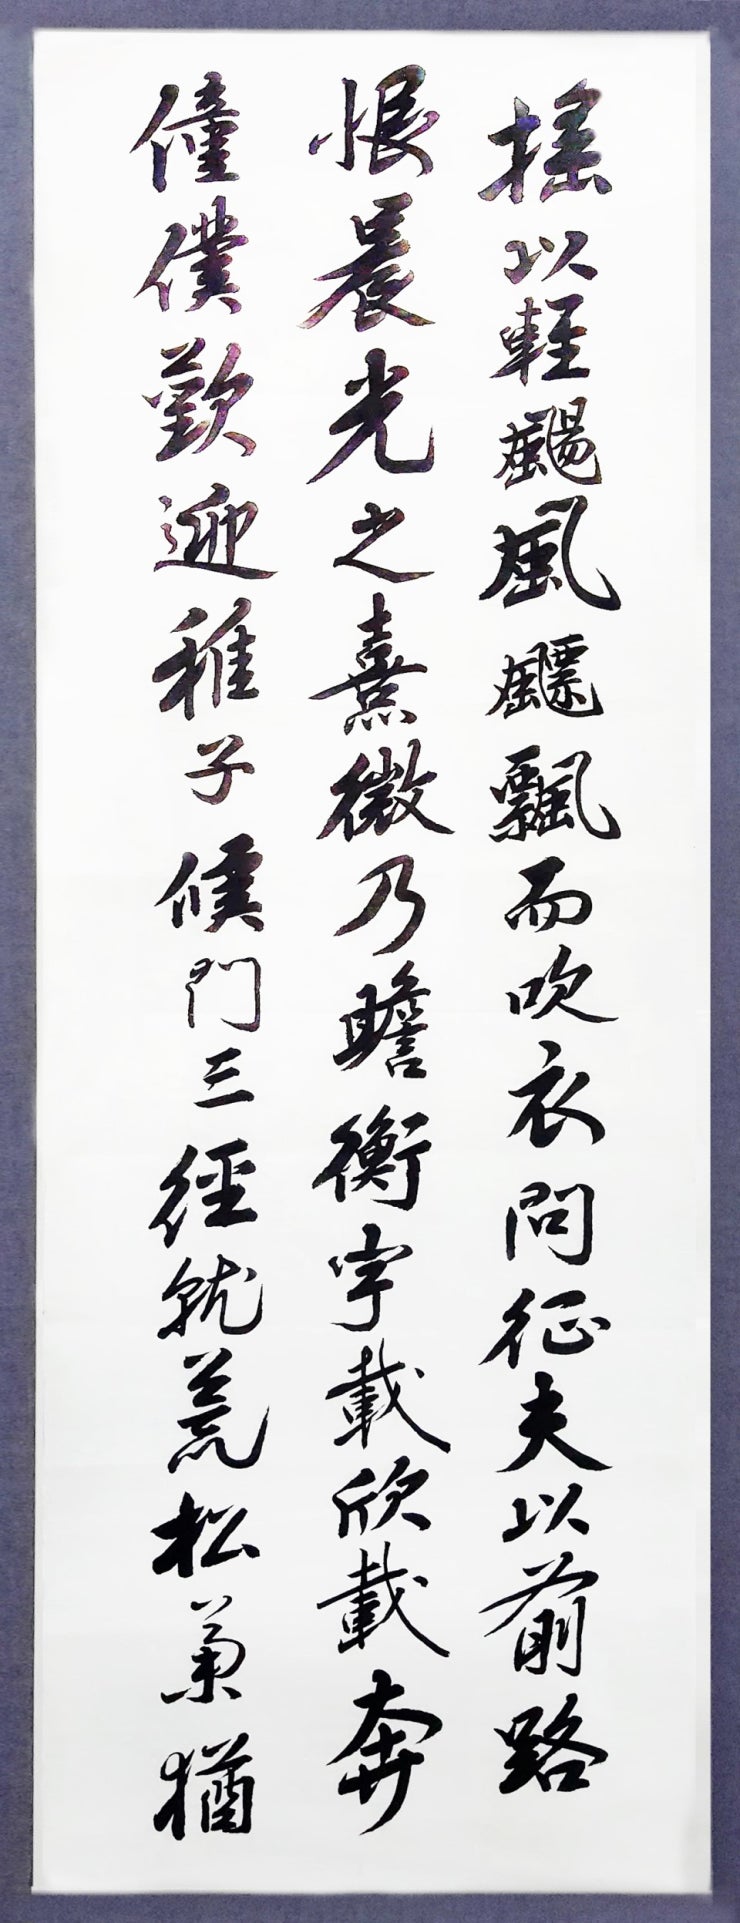 搖以輕颺風飃飄而吹衣問征夫以前路
恨晨光之熹微乃瞻衡宇載欣載奔
僮僕歡迎稚子候門三徑就荒松菊猶